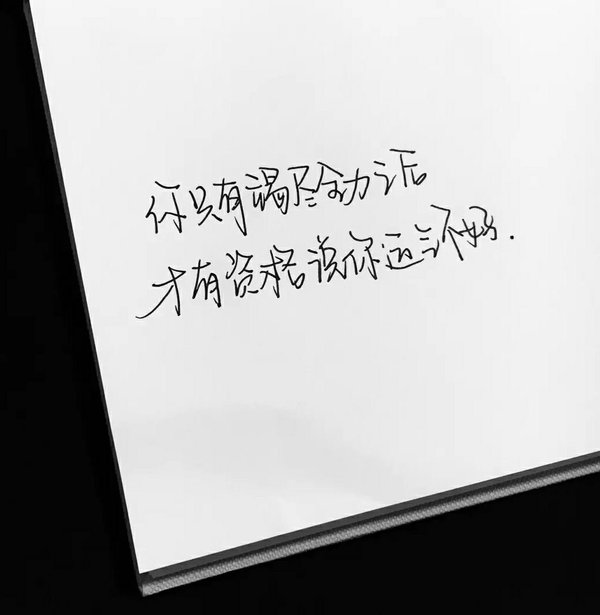 你只有竭尽全力之后
才有资格说你运气不好.